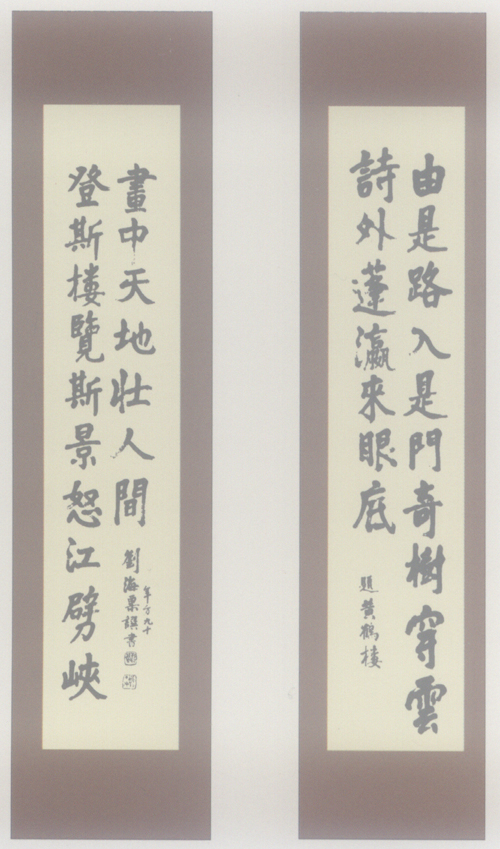 由是路入是門奇樹穿雲
詩外蓬瀛來眼底
題黄鶴樓
登斯樓覽斯景怒江劈峽
畫中天地壯人間
劉海粟譔書
年方九十